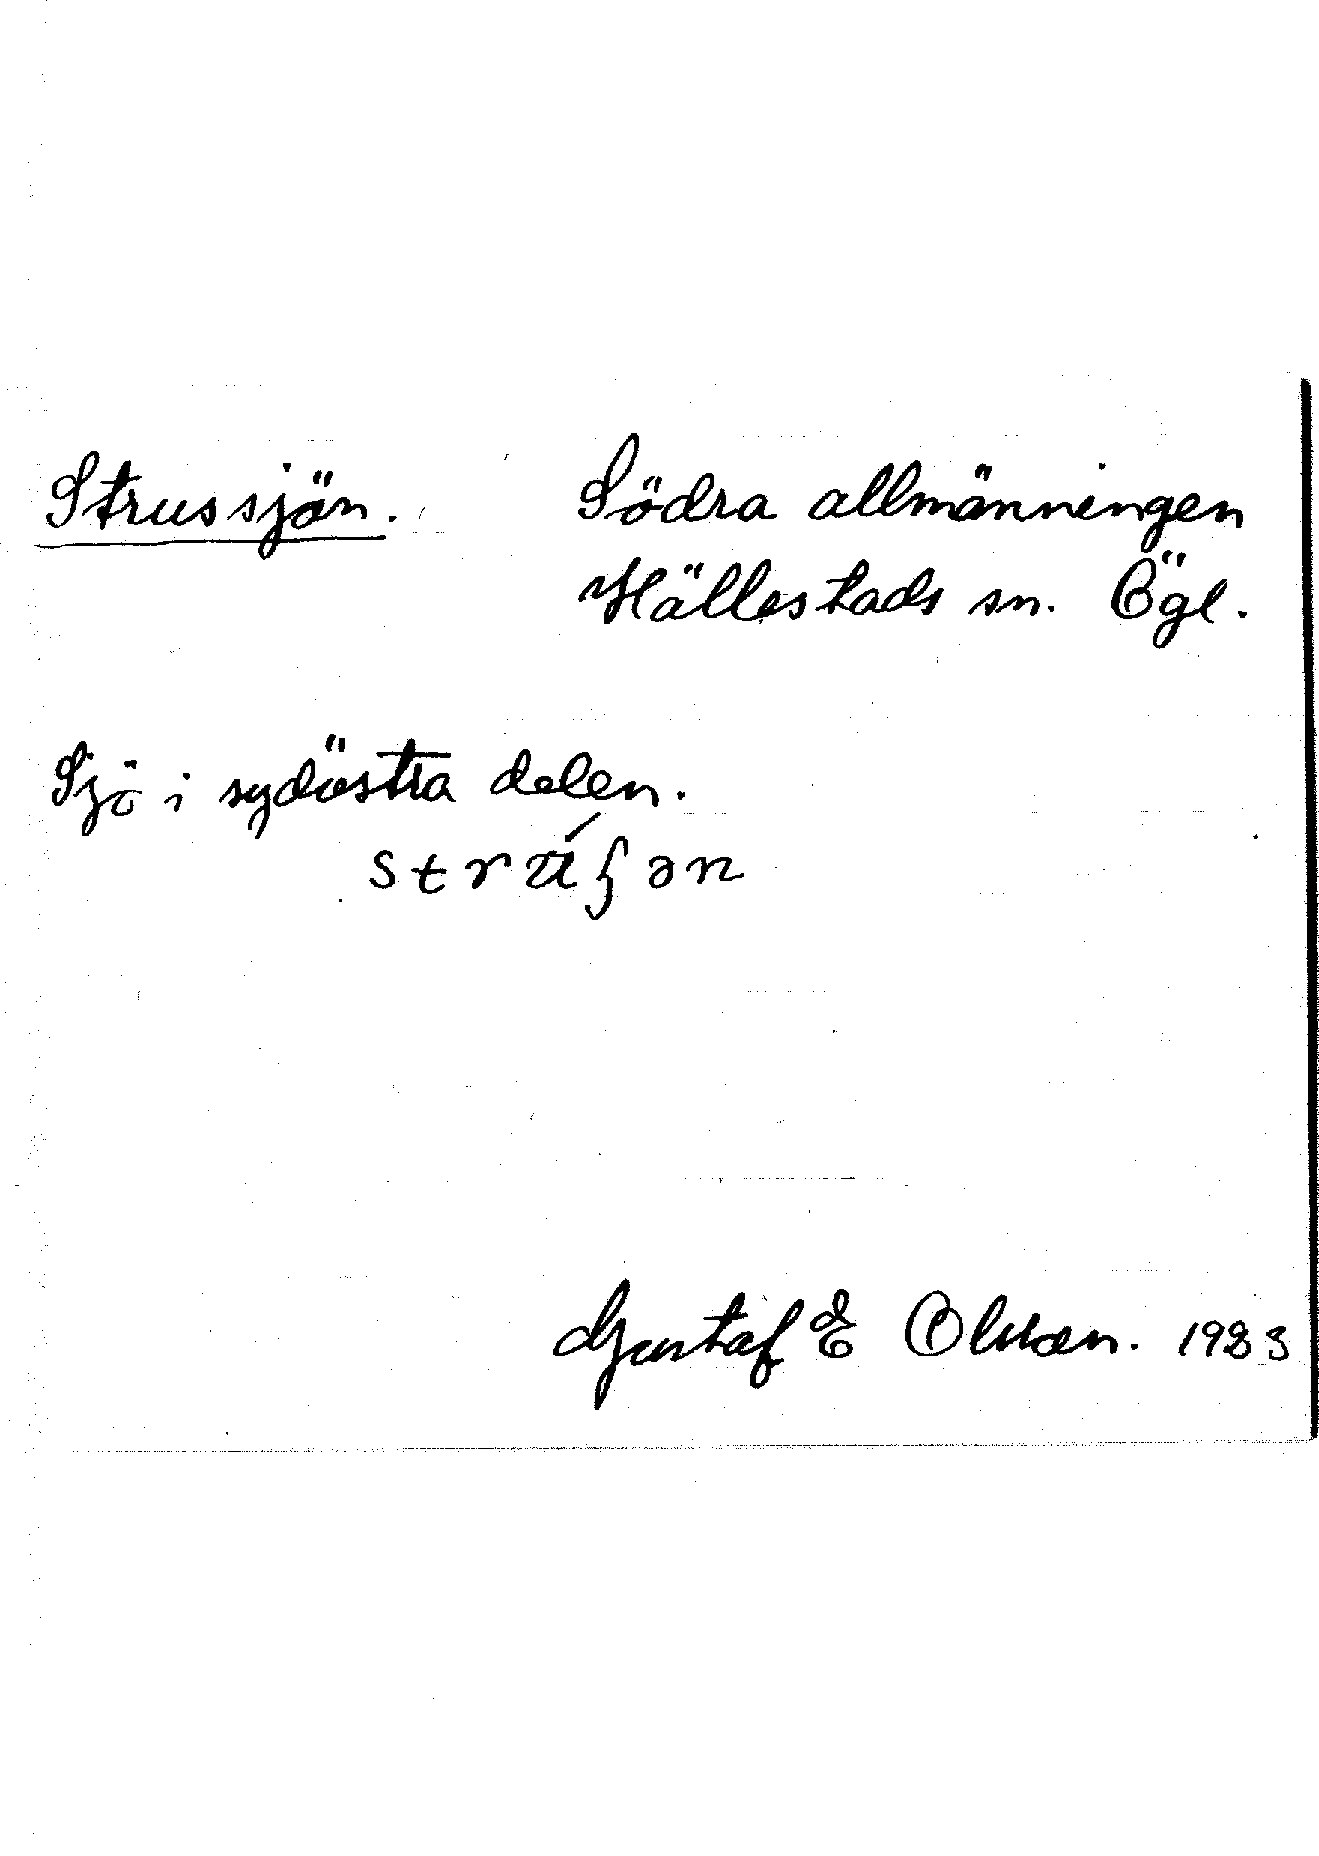 Strussjön. Södra allmänningen
Hällestads sn. Ögl.
Sjö i sydöstra delen.
strú̄ʃən
Gustaf E Olsson. 1983